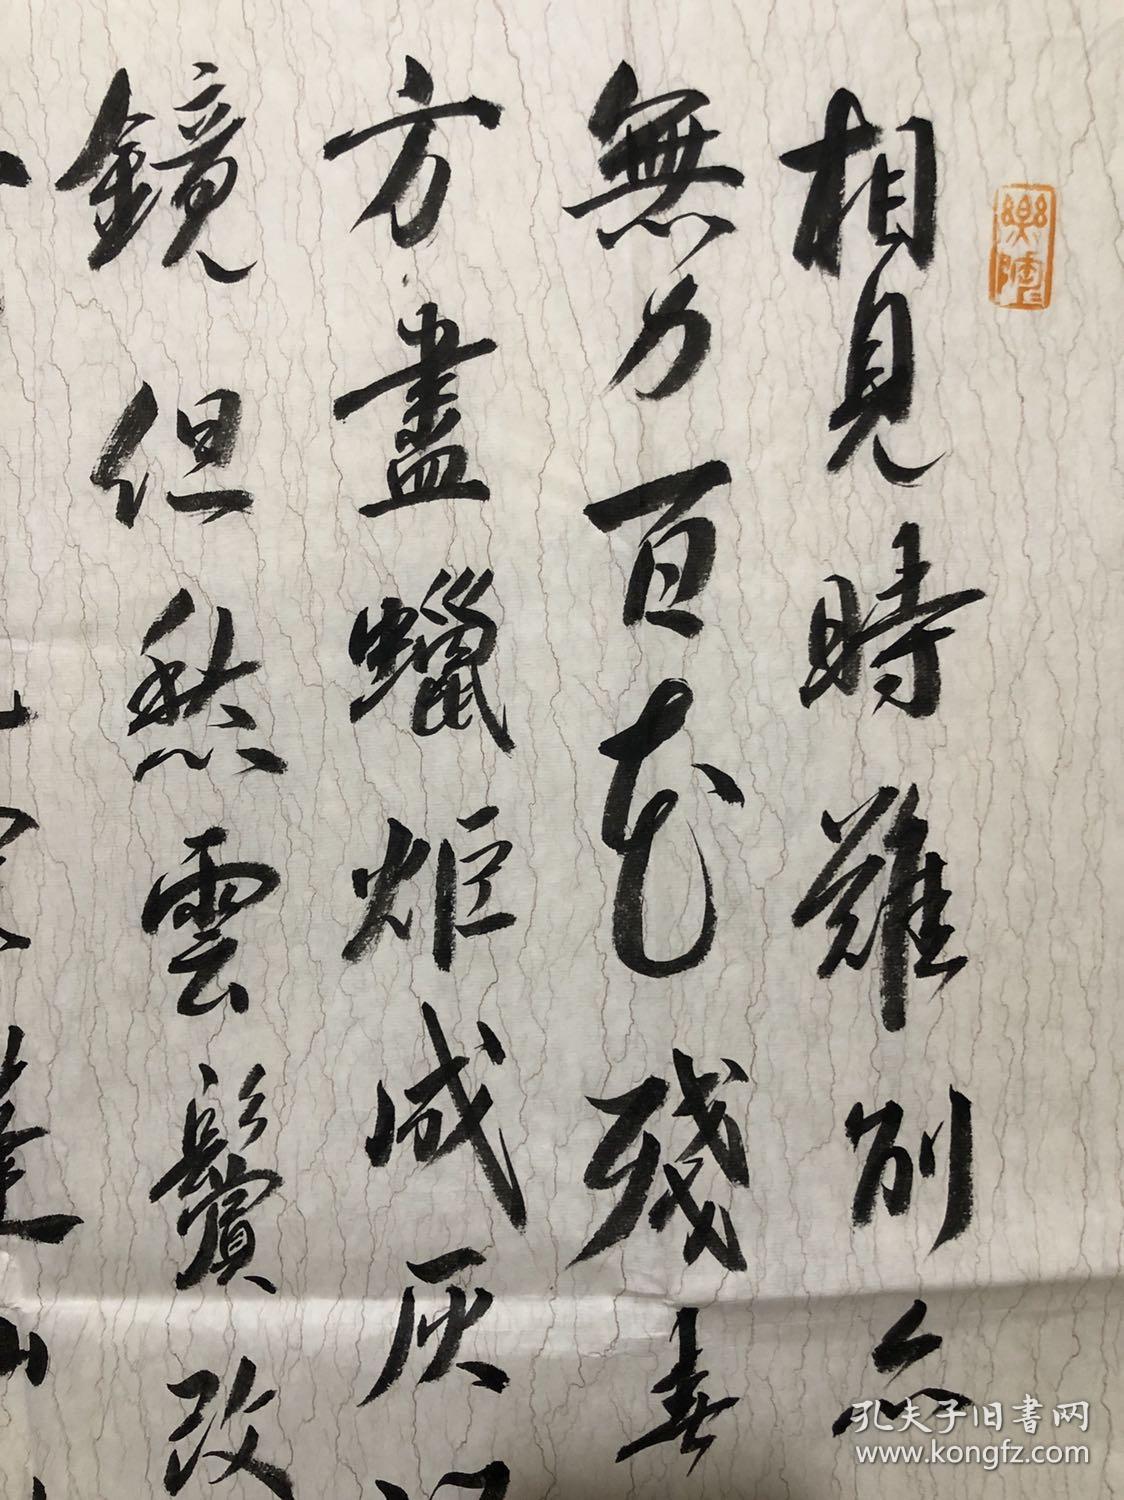 相見時難別亦
無力百花殘春
方盡蠟炬成灰
鏡但愁雲鬢改
蓬山
孔夫子旧書网
www.kongfz.com